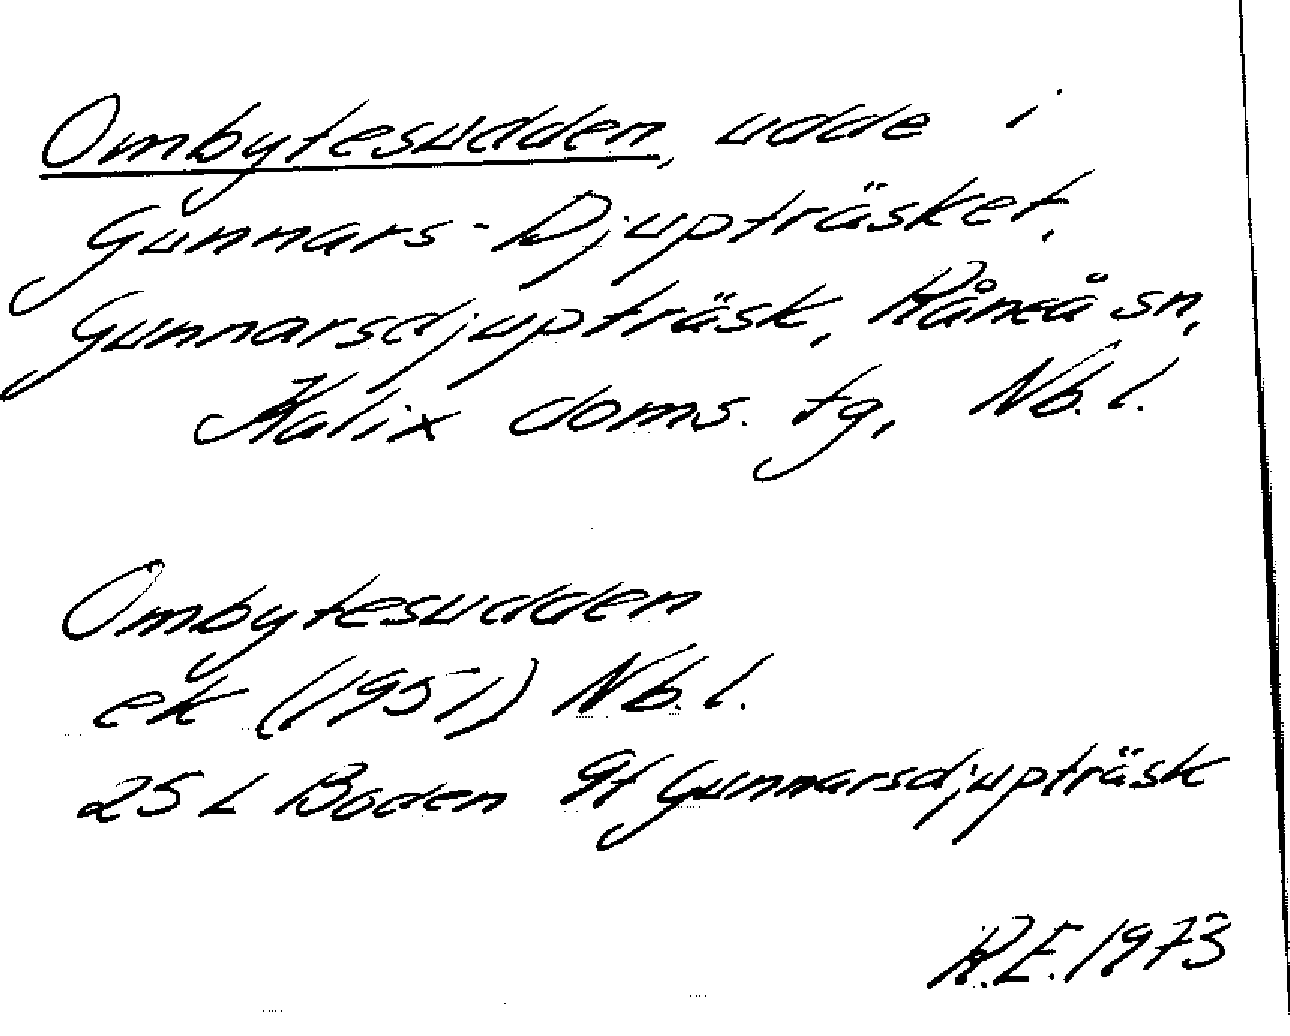 Ombytesudden, udde i
Gunnars-Djupträsket,
Gunnarsdjupträsk, Råneå sn,
Kalix doms. tg, Nb. l.
Ombytesudden
ek (1951) Nb. l.
25 L Boden 9f Gunnarsdjupträsk
R.E. 1973